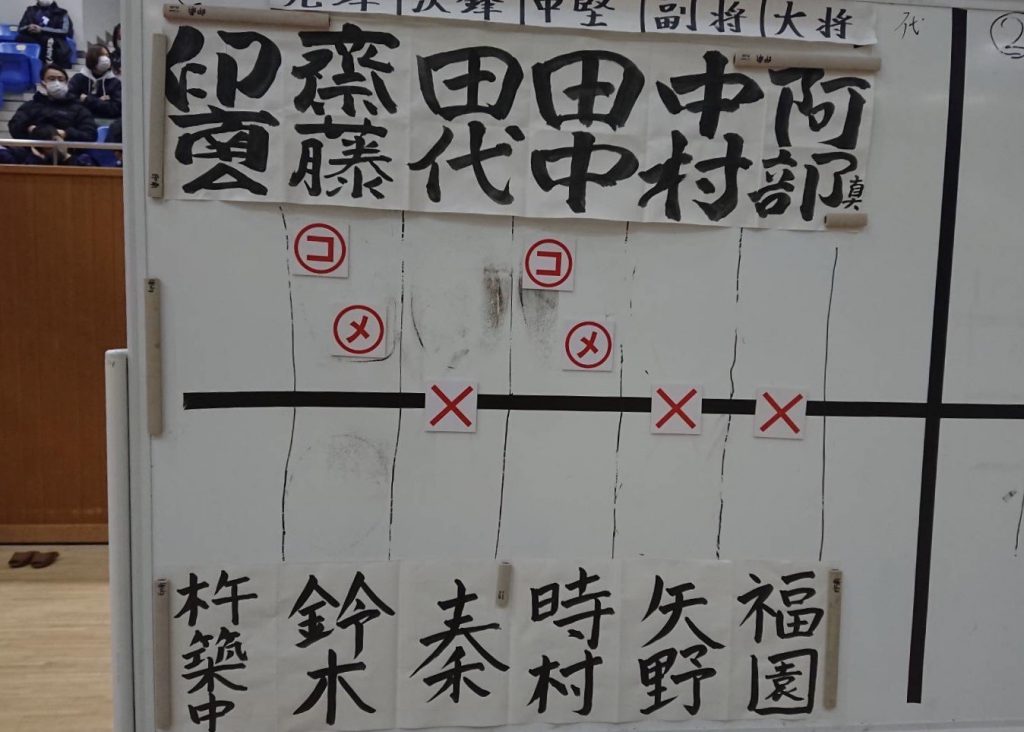 先鋒
次鋒
中堅
副将
大将
代
②
齋藤
田代
田中
中村
阿部真
コ
コ
メ
メ
×
×
×
杵築中
鈴木
秦
時村
矢野
福園